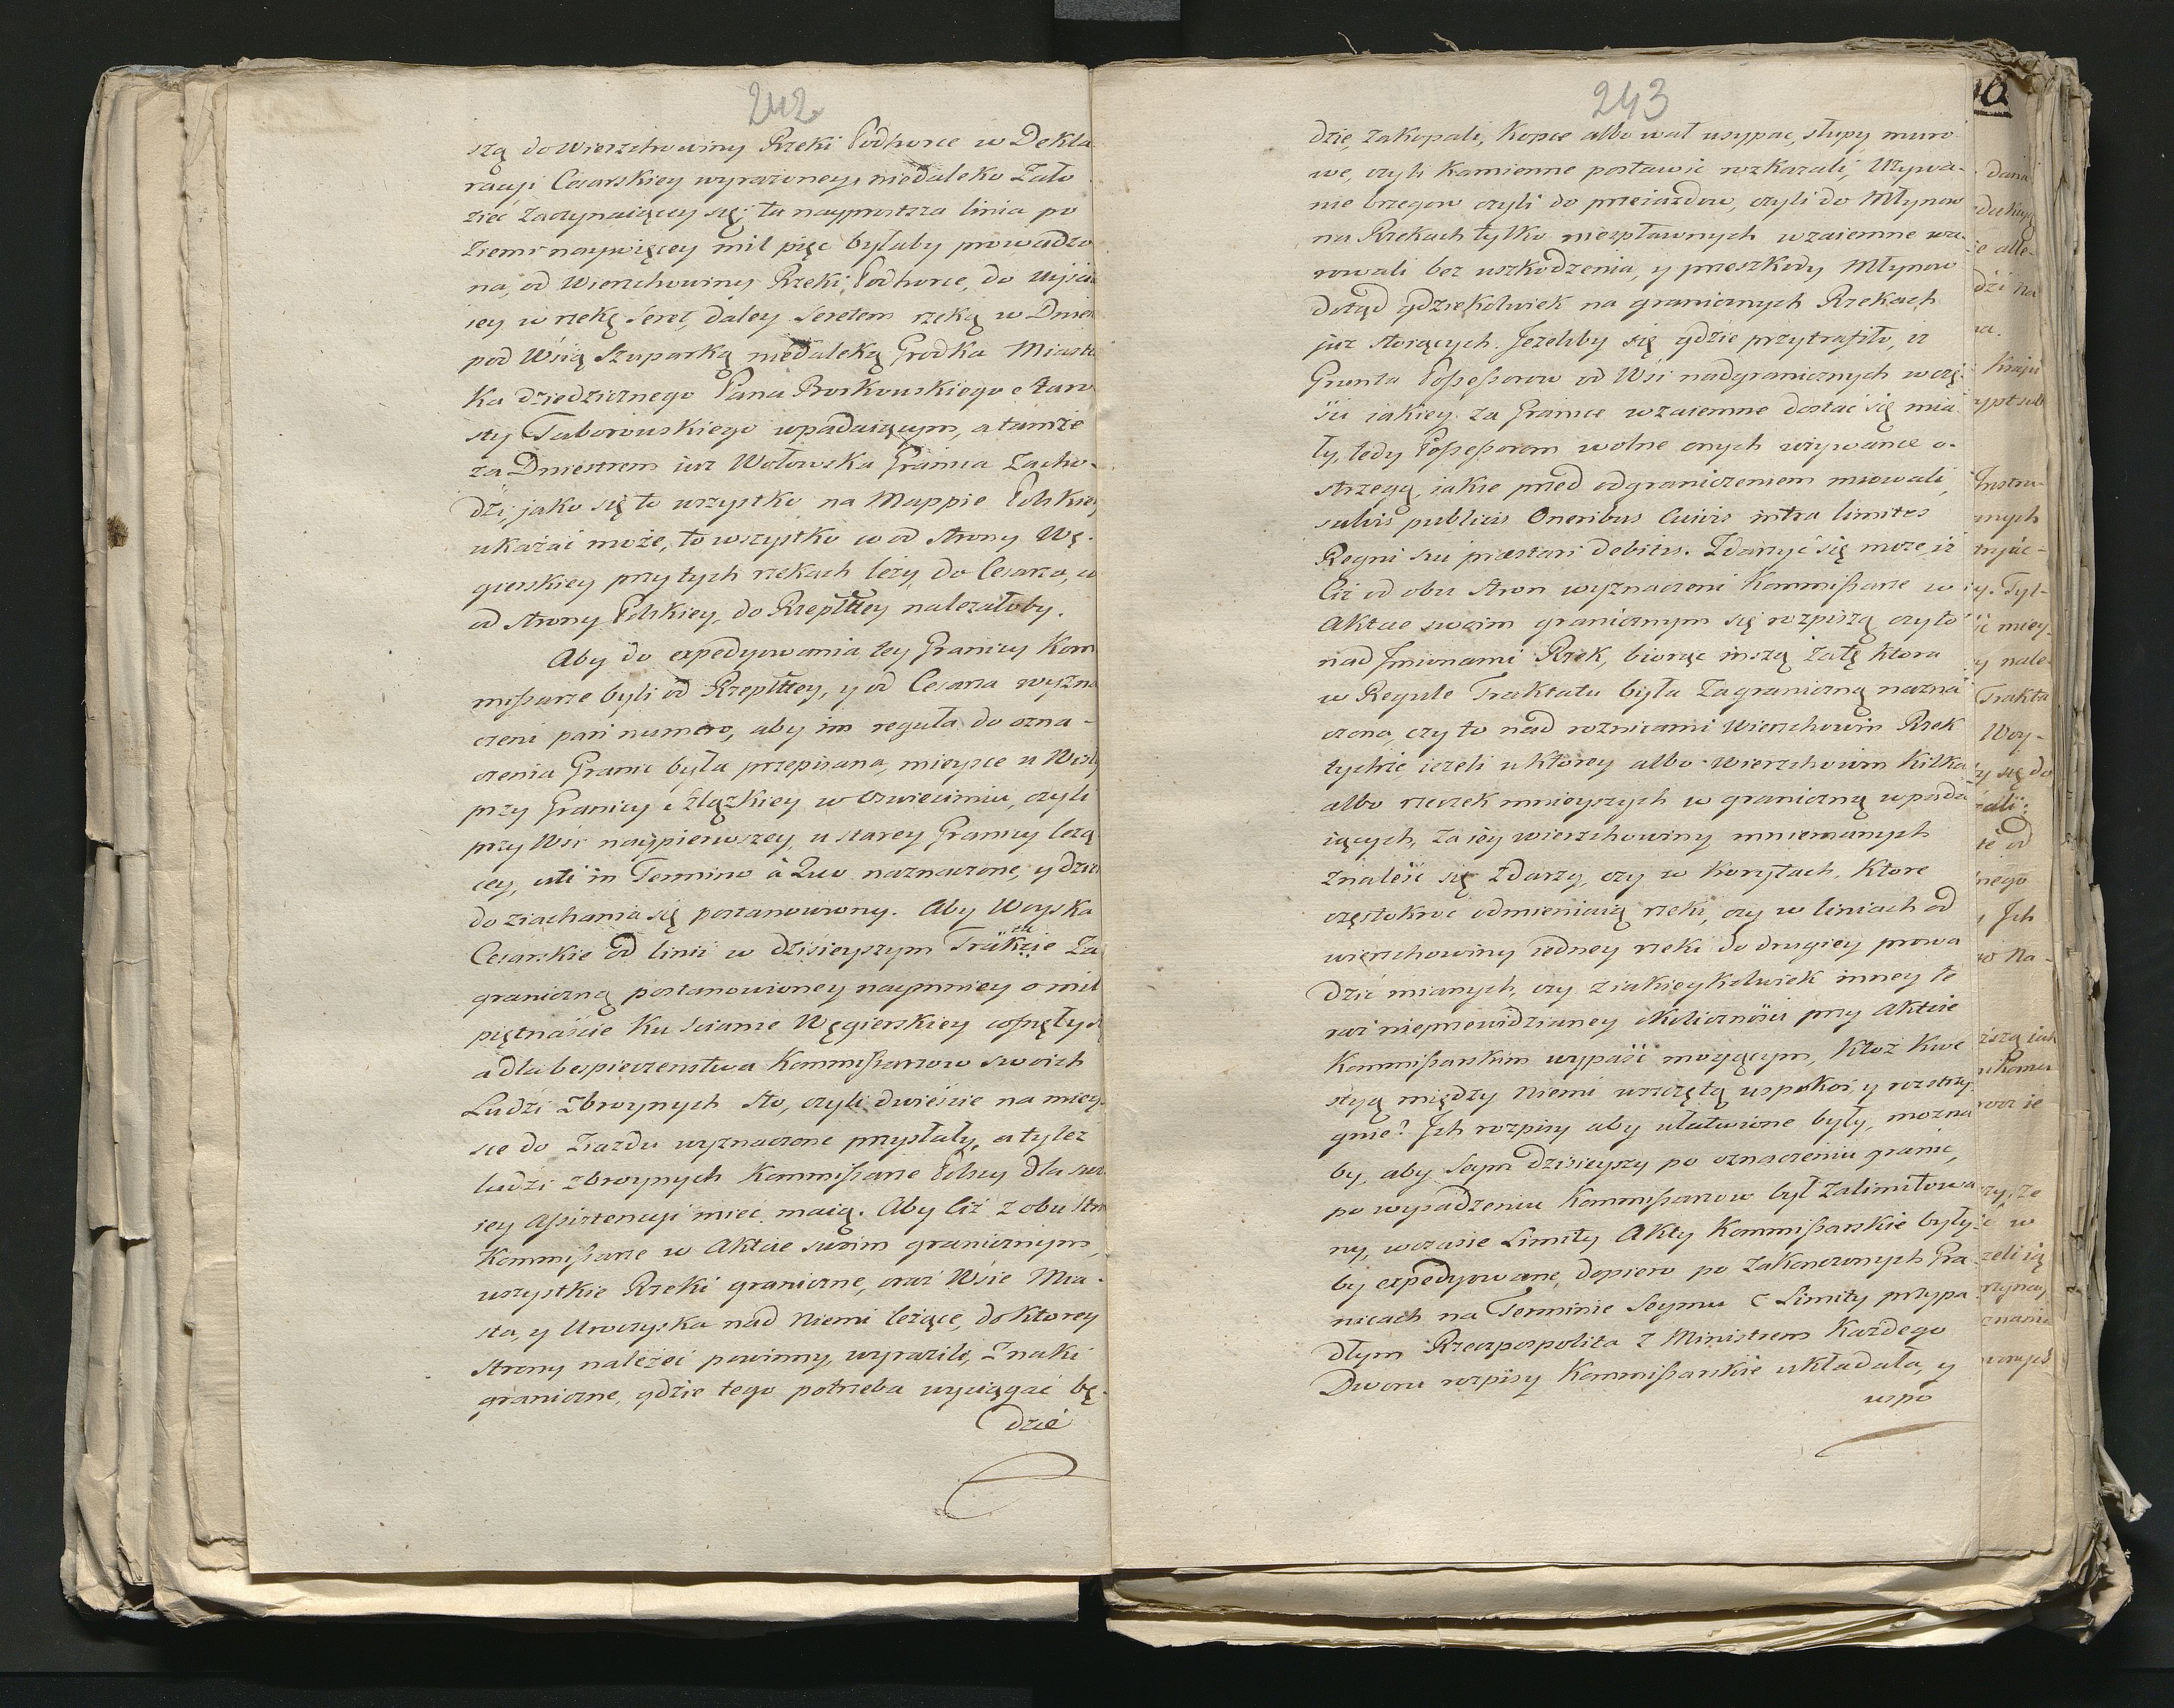 242
szą do Wierzchowiny Rzeki Podhorce w Dekla
racyi Cesarskiey wyrażoney, niedaleko Zało
zieć zaczynaiącey się; ta nayprostsza linia po
ziemi naywięcey mil pięć byłaby prowadzo
na, od Wierzchowiny Rzeki Podhorce, do uyścia
iey w rzekę Seret, daley Seretem rzeką w Dnies
pod Wsią Szuparką niedaleką Grodka Miaste
ka dziedzicznego Pana Borkowskiego Staro
sty Taborowskiego wpadaiącym, a tamże
za Dniestrem iuż Wołowska Granica zacho-
dzi, jako się to wszystko na Mappie Polskiey
ukazać może, to wszystko co od strony Wę-
gierskiey przy tych rzekach leży do Cesarza, co
od strony Polskiey, do Rzepltey należałoby.
Aby do expedyowania tey Granicy Kom
missarze byli od Rzepltey, y od Cesarza wyzna
czeni pari numero, aby im reguła do ozna-
czenia Granic była przepisana, mieysce u Wisły
przy Granicy Szląskiey w Oswiecimiu, czyli
przy Wsi naypierwszey, u starey Granicy leżą
cey, uti in Termino à Quo naznaczone, y dzień
do ziachania się postanowiony. Aby Woyska
Cesarskie od linii w dzisieyszym Trakcie za
ta
graniczną postanowioney naymniey o mil
piętnaście ku scianie Węgierskiey cofnęły się
a dla bespieczenstwa Kommissarzow swoich
Ludzi zbroynych sto, czyli dwieście na miey-
sce do Ziazdu wyznaczone przysłały, a tyleż
ludzi zbroynych Kommissarze Polscy dla swo
iey Assistencyi mieć maią. Aby Ciż z obu stron
Kommissarze w Akcie swoim granicznym,
wszystkie Rzeki graniczne, oraz Wsie Mia-
sta, y Uroczyska nad niemi leżące, do ktorey
strony należeć powinny, wyrazili, Znaki
graniczne, gdzie tego potrzeba wyciągać bę-
dzie
243
dzie, zakopali, kopce albo wał usypać, słupy muro
we, czyli kamienne postawić rozkazali, Używa-
nie brzegow czyli do przeiazdow, czyli do Młynow
na Rzekach tylko niespławnych wzaiemne wa-
rowali bez uszkodzenia, y przeszkody Młynow
dotąd gdziekolwiek na granicznych Rzekach
już stoiących. Jeżeliby się gdzie przytrafiło, iż
Grunta Possessorow od Wsi nadgranicznych w czę-
ści iakiey za Granice wzaiemne dostać się mia
ły, tedy Possessorom wolne onych używanie o-
strzegą, iakie przed odgraniczeniem miewali,
salvis publicis Oneribus Cuivis intra limites
Regni sui præstari debitis. Zdarzyć się może, iż
Ciż od obu stron wyznaczeni Kommissarze w
Akcie swoim granicznym się rozpiszą czy to
nad Imionami Rzek, biorąc inszą zatę ktora
w Regule Traktatu była za graniczną nazna
czona, czy to nad roznicami Wierzchowin Rzek
tychże ieżeli u ktorey albo Wierzchowin kilka
albo rzeczek mnieyszych w graniczną wpada
iących, za iey wierzchowiny mniemanych
znaleść się zdarzy, czy w korytach, ktore
częstokroć odmieniaią rzeki, czy w liniach od
wierzchowiny iedney rzeki do drugiey prowa
dzić mianych, czy z iakieykolwiek inney te
raz nieprzewidzianey okoliczności przy Akcie
Kommissarskim wypaść mogącym, ktoż kwe
styą między niemi wszczętą uspokoi y rozstrzy-
gnie? Ich rozpisy aby ułatwione były, można
by, aby Seym dzisieyszy po oznaczeniu granic,
po wysadzeniu Kommissarzow był zalimitowa
ny, w czasie Limity Akty Kommissarskie były-
by expedyowane, dopiero po zakonczonych Gra-
nicach na Terminie Seymu z Limity przypa
dłym Rzeczpospolita z Ministrem każdego
Dworu rozpisy Kommissarskie układała, y
uspo